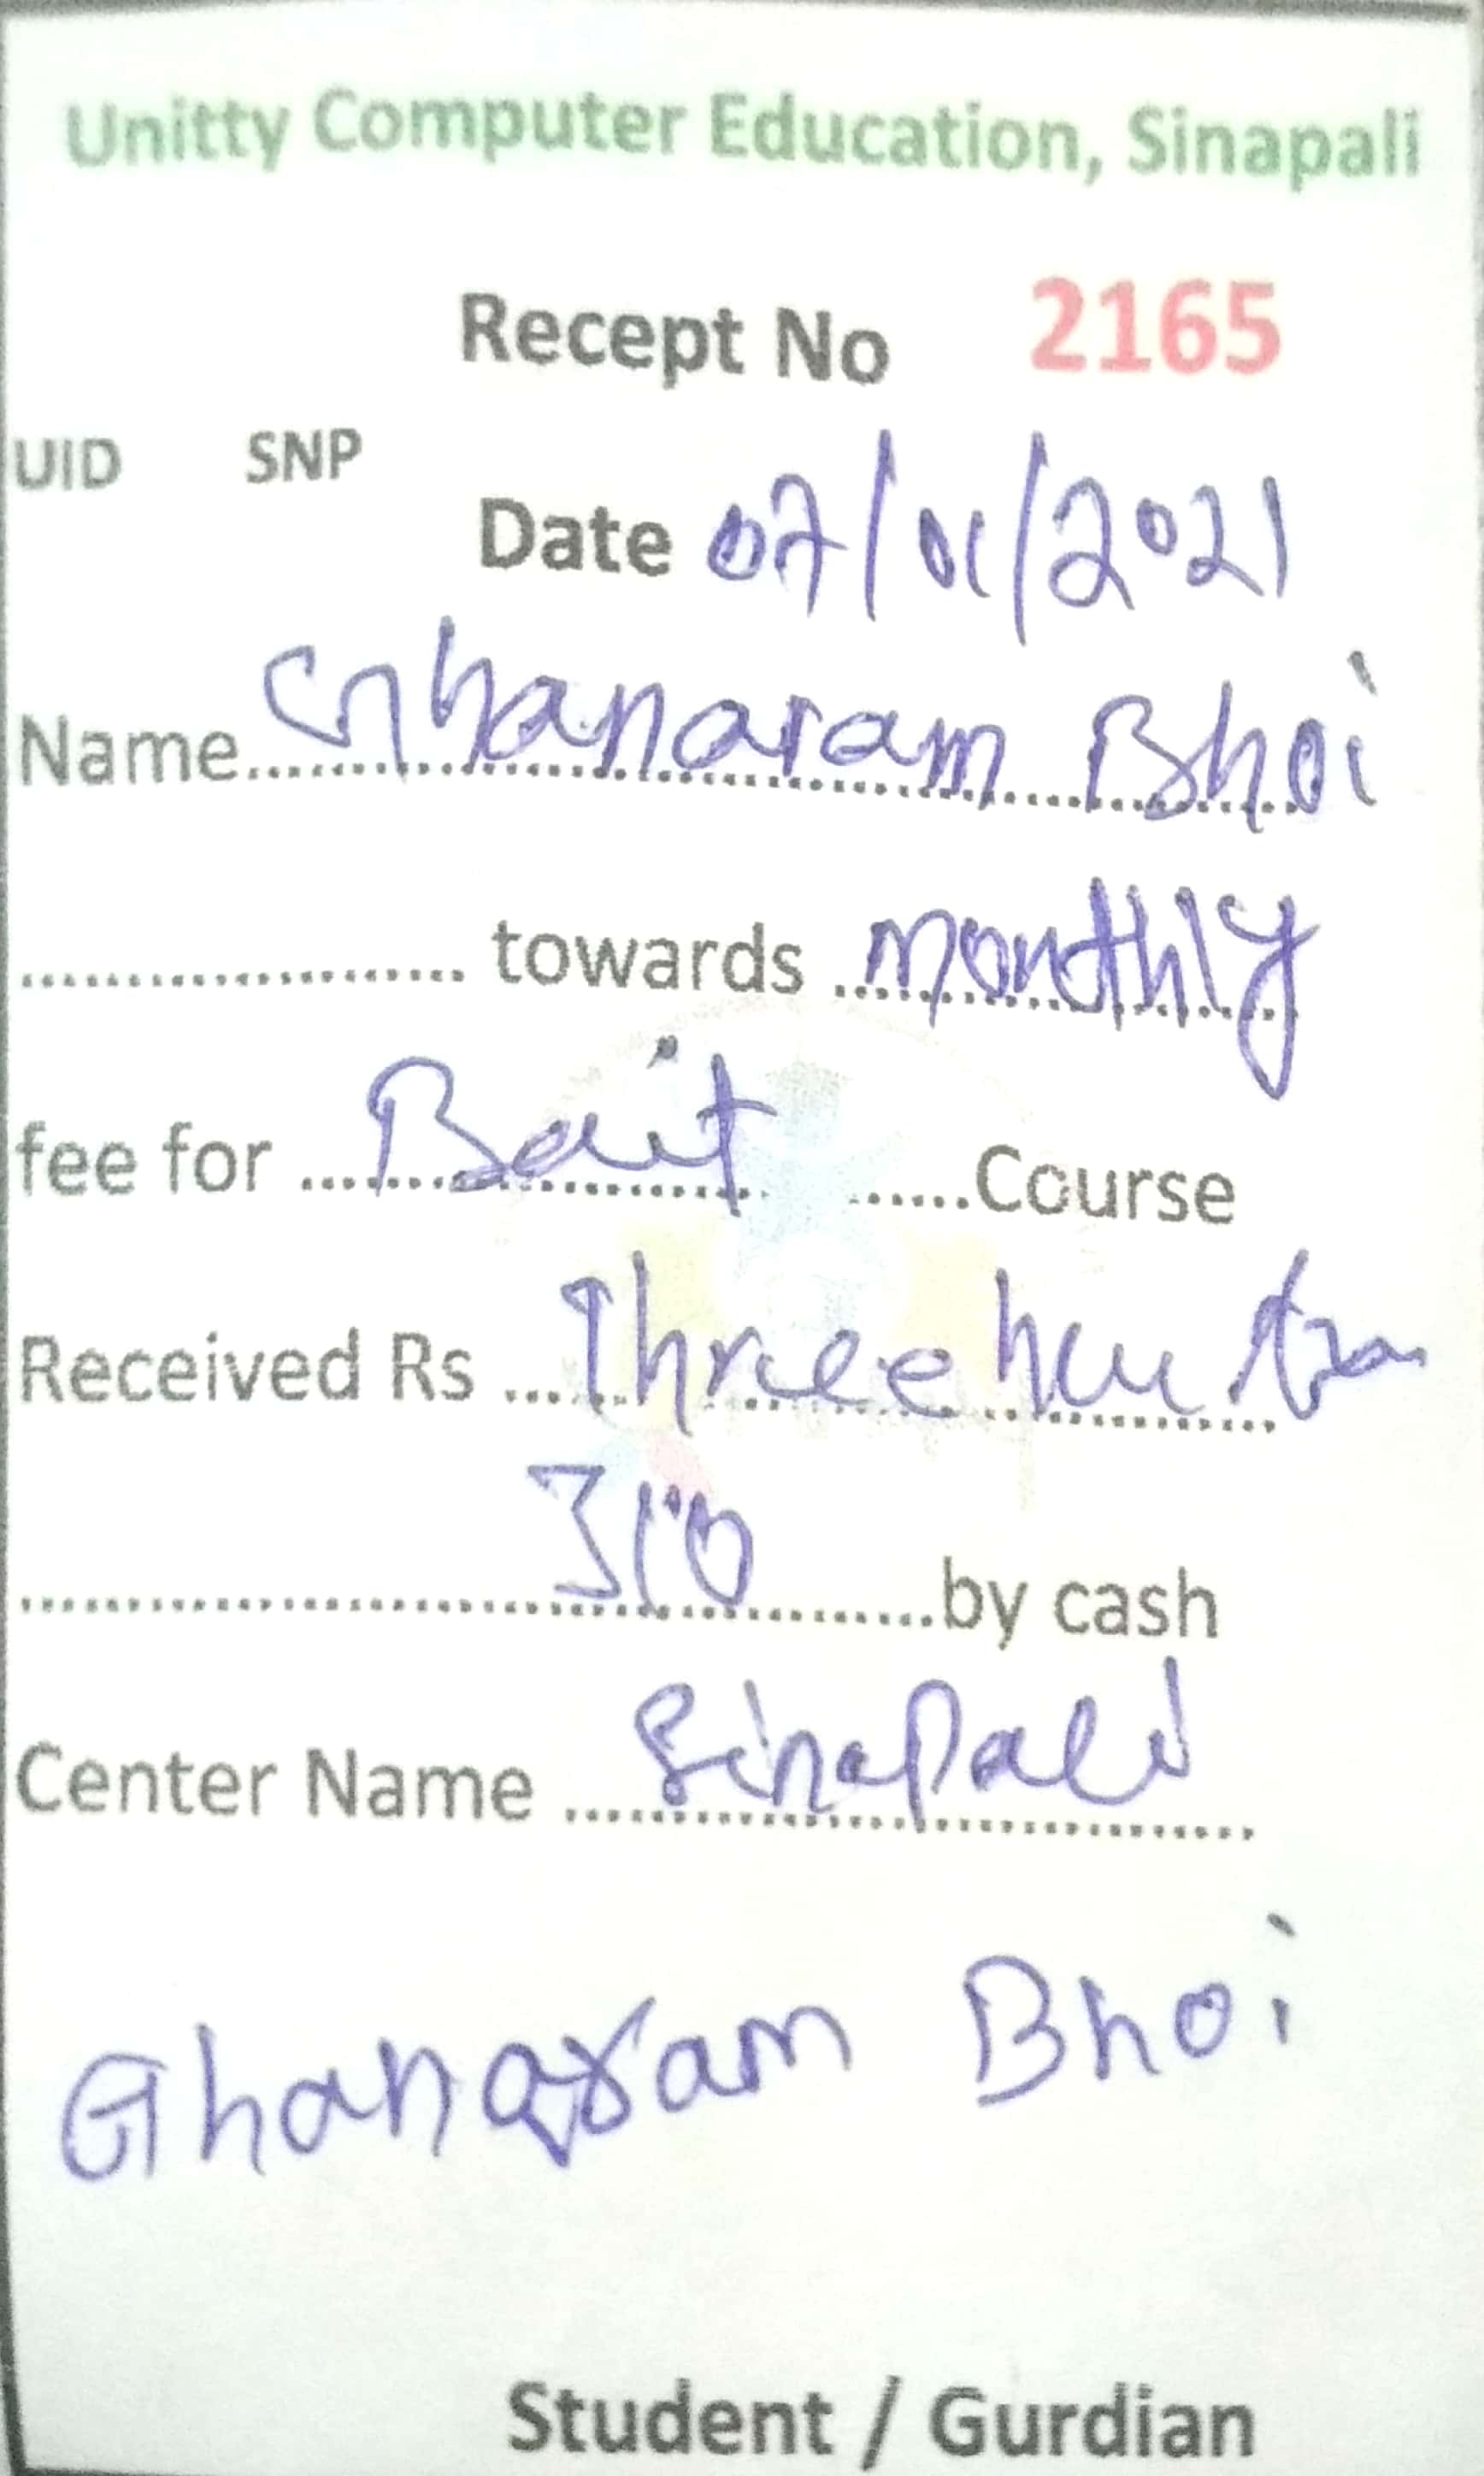 Unitty Computer Education, Sinapali
Recept No 2165
UID SNP
Date 07/01/2021
Name Ghanaram Bhoi
towards monthly
fee for Bait Course
Received Rs Three hu
310 by cash
Center Name Sinapali
Ghanaram Bhoi
Student / Gurdian